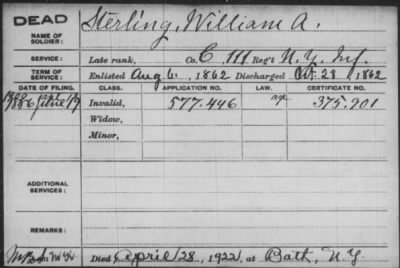 DEAD
NAME OF SOLDIER:
Sterling, William A.
SERVICE:
Late rank, Co. C, 111 Reg't N.Y. Inf.
TERM OF SERVICE:
Enlisted Aug. 6, 1862 Discharged Oct. 28, 1862
DATE OF FILING. CLASS. APPLICATION NO. LAW. CERTIFICATE NO.
1886 Invalid, 577.446 375.201
Widow,
Minor,
ADDITIONAL SERVICES:
REMARKS:
Died April 28, 1922, at Bath, N.Y.